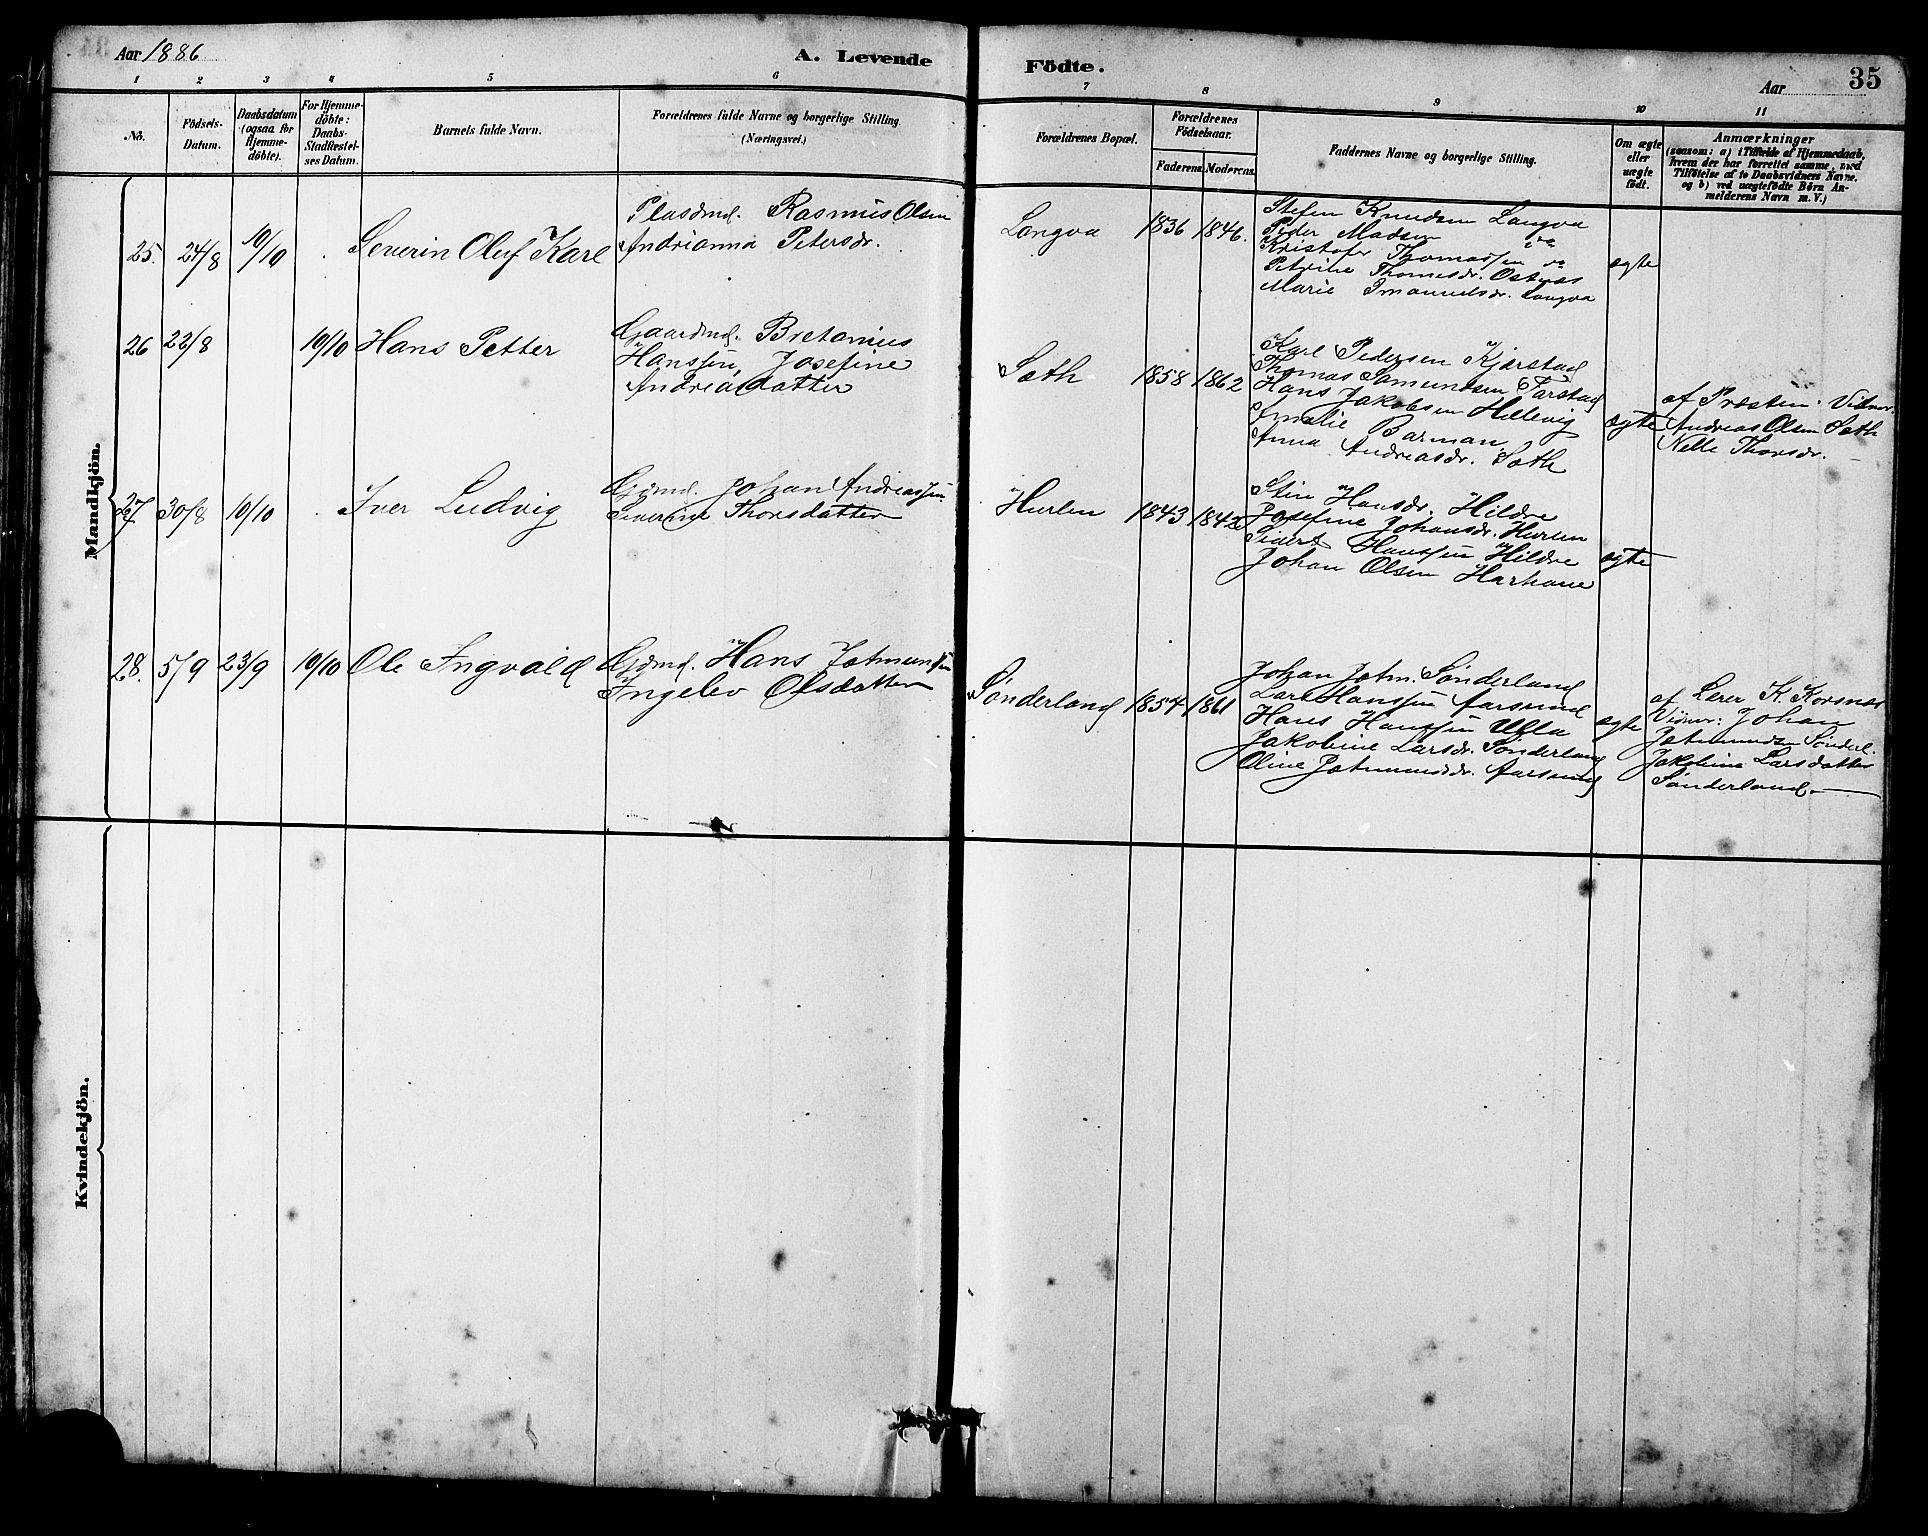 Aar 1886
A. Levende
Födte.
Aar
35
1 2 3 4 5 6 7 8 9 10 11
No.
Födsels-
Datum.
Daabsdatum
(ogsaa for
Hjemme-
döbte).
For Hjemme-
döbte:
Daabs-
Stadfæstel-
ses Datum.
Barnets fulde Navn.
Forældrenes fulde Navne og borgerlige Stilling.
(Næringsvei.)
Forældrenes Bopæl.
Forældrenes
Födselsaar.
Faderens. Moderens.
Faddernes Navne og borgerlige Stilling.
Om ægte
eller
uægte
födt.
Anmærkninger
(saasom: a) i Tilfælde af Hjemmedaab,
hvem der har forrettet samme, med
Tilföielse af to Daabsvidners Navne,
og b) ved uægtefödte Börn An-
melderens Navn m.V.)
Mandkjön.
25. 24/8 10/10 . Severin Oluf Karl
Pladsmd. Rasmus Olsen
Andrianna Petersdr.
Longva 1836 1846.
Stefen Knudsen Longva
Peder Madsen
Kristofer Thomassen
Petrine Thomesdr. Ostnæs
Marie Imanuelsdr. Longva
ægte
26 22/8 10/10 Hans Petter
Gaardmd. Bretonius
Hanssen, Josefine
Andreasdatter
Sæth 1858 1862
Karl Pedersen Kjærstad
Thomas Samundsen Farstad
Hans Jakobsen Hellevig
Amalie Barman
Anna Andreasdr. Sæth
ægte
af Præsten. Vidner:
Andreas Olsen Sæth
Nelle Thorsdr.
27 30/8 10/10 . Iver Ludvig
Gdmd. Johan Andreassen
Severine Thorsdatter
Hurlen 1843 1842
Stin Hansdr. Hildre
Josefine Johansdr. Hurlen
Sivert Hanssen Hildre
Johan Olsen Harhane
ægte
28. 5/9 23/9 10/10 Ole Ingvald
Gdmd. Hans Jetmundsen
Ingelev Olsdatter
Sønderland 1854 1861
Johan Jetm. Sønderland
Lars Hanssen Aarsund
Hans Hanssen Ulla
Jakobine Larsdr. Sønderland
Oline Jetmundsdr. Aarsund
ægte
af Lerer K. Korsnæs
Vidner: Johan
Jetmundsen Sønderl.
Jakobine Larsdatter
Sønderland.
Kvindekjön.